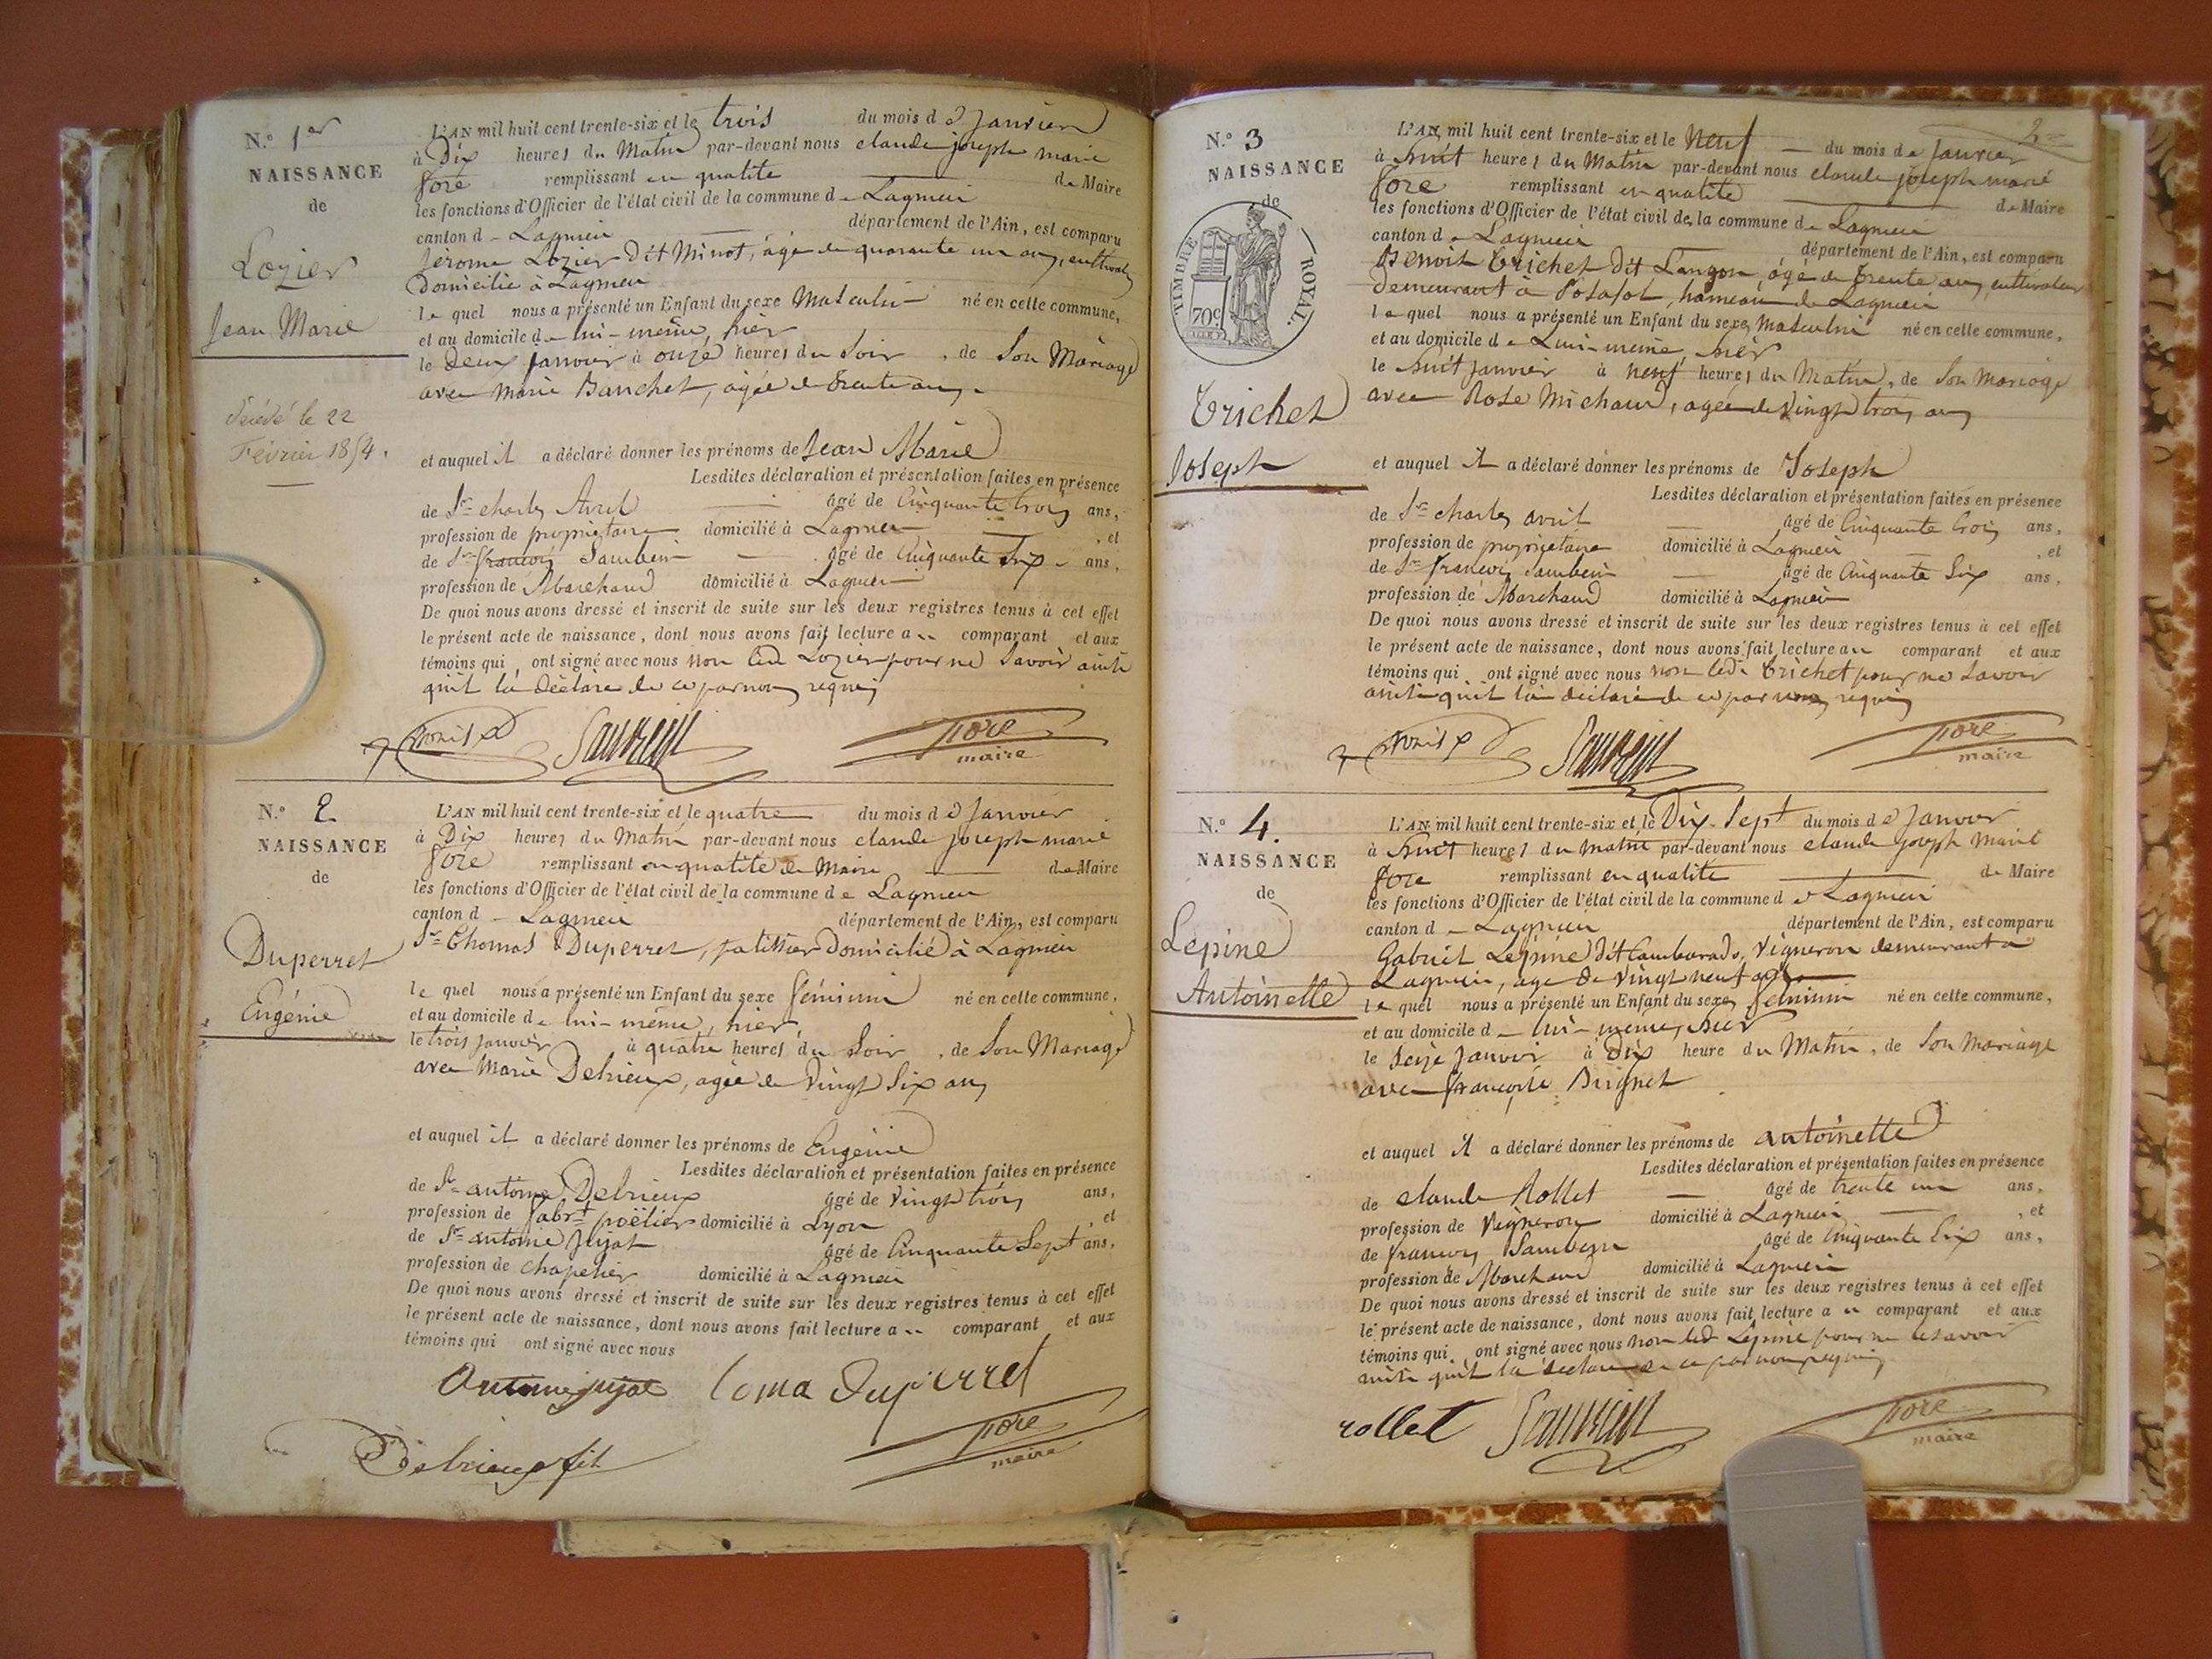 N.° 1er
NAISSANCE
de
Lozier
Jean Marie
Décédé le 22
Février 1854.
L'AN mil huit cent trente-six et le trois du mois de Janvier
à Dix heures du Matin par-devant nous claude joseph marie
fore remplissant en qualité de Maire
les fonctions d'Officier de l'état civil de la commune de Lagnieu
canton de Lagnieu département de l'Ain, est comparu
Jérome Lozier Dit Minot, âgé de quarante un ans, cultivateur
Domicilié à Lagnieu
lequel nous a présenté un Enfant du sexe Masculin né en cette commune,
et au domicile de lui-même, hier
le deux janvier à onze heures du Soir, de Son Mariage
avec Marie Banchet, agée de trente ans
et auquel il a déclaré donner les prénoms de Jean Marie
Lesdites déclaration et présentation faites en présence
de Sr charles Avril âgé de Cinquante trois ans,
profession de propriétaire domicilié à Lagnieu, et
de Sr françois Sambein âgé de Cinquante Six ans,
profession de Marchand domicilié à Lagnieu
De quoi nous avons dressé et inscrit de suite sur les deux registres tenus à cet effet
le présent acte de naissance, dont nous avons fait lecture au comparant et aux
témoins qui ont signé avec nous non led. Lozier pour ne Savoir ainsi
quil la déclaré de ce par nous requis
fore
maire
N.° 2
NAISSANCE
de
Duperret
Eugénie
L'AN mil huit cent trente-six et le quatre du mois de Janvier
à Dix heures du Matin par-devant nous claude joseph marie
fore remplissant en qualité de Maire de Maire
les fonctions d'Officier de l'état civil de la commune de Lagnieu
canton de Lagnieu département de l'Ain, est comparu
Sr Thomas Duperret, patissier Domicilié à Lagnieu
lequel nous a présenté un Enfant du sexe féminin né en cette commune,
et au domicile de lui-même, hier,
le trois janvier à quatre heures du Soir, de Son Mariage
avec Marie Delrieux, agée de Vingt Six ans
et auquel il a déclaré donner les prénoms de Eugénie
Lesdites déclaration et présentation faites en présence
de Sr antoine Delrieux âgé de Vingt trois ans,
profession de fabrt poëlier domicilié à Lyon, et
de Sr antoine Jujat âgé de Cinquante Sept ans,
profession de chapelier domicilié à Lagnieu
De quoi nous avons dressé et inscrit de suite sur les deux registres tenus à cet effet
le présent acte de naissance, dont nous avons fait lecture au comparant et aux
témoins qui ont signé avec nous
Antoine jujat toma Dupérret
Delrieux fil fore
maire
2
N.° 3
NAISSANCE
de
TIMBRE ROYAL.
70c
Trichet
Joseph
L'AN mil huit cent trente-six et le Neuf du mois de Janvier
à huit heures du Matin par-devant nous claude joseph marie
fore remplissant en qualité de Maire
les fonctions d'Officier de l'état civil de la commune de Lagnieu
canton de Lagnieu département de l'Ain, est comparu
Benoit Trichet Dit Langon, âgé de trente ans, cultivateur
demeurant à Posafol, hameau de Lagnieu
lequel nous a présenté un Enfant du sexe Masculin né en cette commune,
et au domicile de Lui-même, hier
le huit janvier à neuf heures du Matin, de Son mariage
avec Rose Michaud, agée de Vingt trois ans
et auquel il a déclaré donner les prénoms de Joseph
Lesdites déclaration et présentation faites en présence
de Sr charles avril âgé de Cinquante trois ans,
profession de propriétaire domicilié à Lagnieu, et
de Sr françois Sambein âgé de Cinquante Six ans,
profession de Marchand domicilié à Lagnieu
De quoi nous avons dressé et inscrit de suite sur les deux registres tenus à cet effet
le présent acte de naissance, dont nous avons fait lecture au comparant et aux
témoins qui ont signé avec nous non led. Trichet pour ne Savoir
ainsi quil la déclaré de ce par nous requis
fore
maire
N.° 4.
NAISSANCE
de
Lepine
Antoinette
L'AN mil huit cent trente-six et le Dix Sept du mois de Janvier
à huit heures du matin par-devant nous claude joseph marie
fore remplissant en qualité de Maire
les fonctions d'Officier de l'état civil de la commune de Lagnieu
canton de Lagnieu département de l'Ain, est comparu
Gabriel Lepine dit Cambarado, Vigneron demeurant à
Lagnieu, age de vingt neuf ans
lequel nous a présenté un Enfant du sexe féminin né en cette commune,
et au domicile de lui-même, hier
le Seize Janvier à Dix heure du Matin, de Son mariage
avec françoise Buignet
et auquel il a déclaré donner les prénoms de antoinette
Lesdites déclaration et présentation faites en présence
de claude Rollet âgé de trente un ans,
profession de Vigneron domicilié à Lagnieu, et
de françois Sambein âgé de Cinquante Six ans,
profession de Marchand domicilié à Lagnieu
De quoi nous avons dressé et inscrit de suite sur les deux registres tenus à cet effet
le présent acte de naissance, dont nous avons fait lecture au comparant et aux
témoins qui ont signé avec nous non led. Lepine pour ne le savoir
ainsi quil la déclaré de ce par nous requis
rollet fore
maire